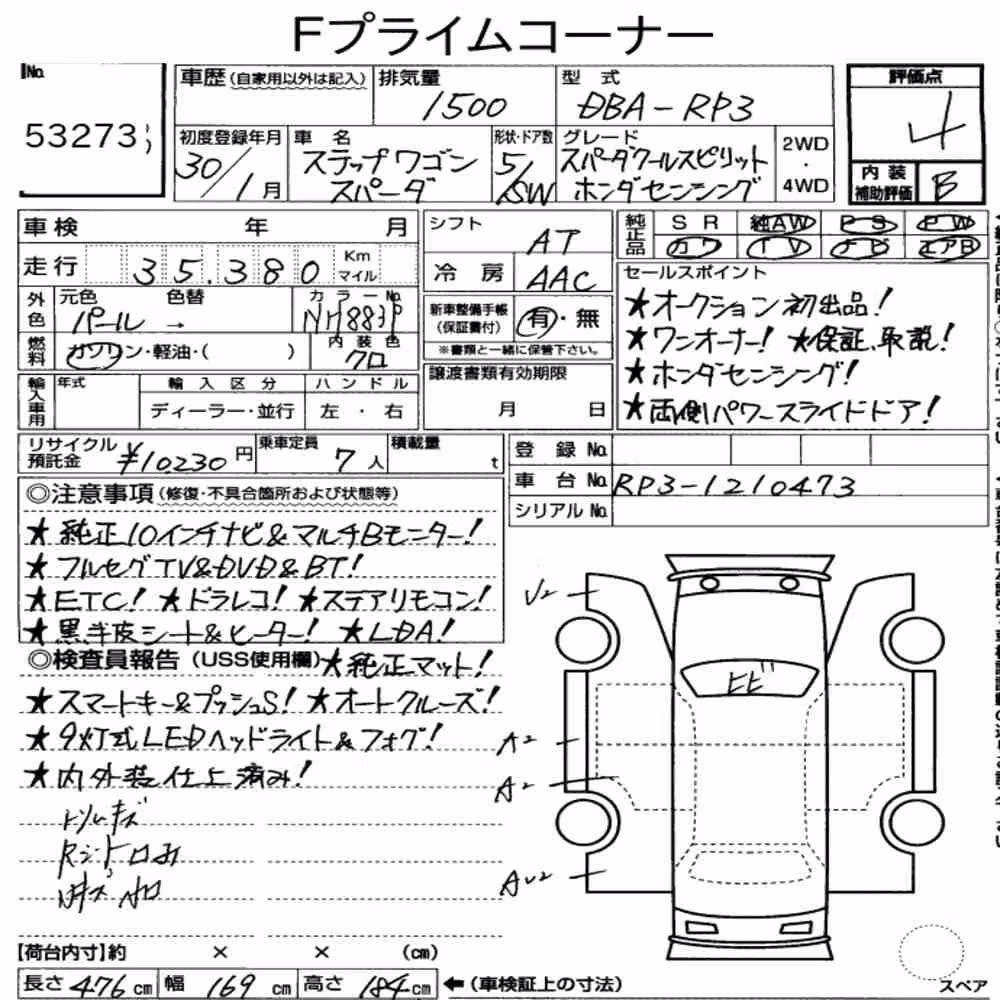 Fプライムコーナー
No.
53273
車歴(自家用以外は記入)
排気量
1500
型式
DBA-RP3
初度登録年月
30/1月
車名
ステップワゴン
スパーダ
形状・ドア数
5/SW
グレード
スパーダクールスピリット
ホンダセンシング
2WD
・
4WD
評価点
4
内装
補助評価
B
車検 年 月
走行 35.380 Km
マイル
外色
元色 色替
パール →
カラーNo.
NH883P
燃料
ガソリン・軽油・( )
内装色
クロ
輸入車用
年式
輸入区分
ディーラー・並行
ハンドル
左・右
シフト
AT
冷房
AAC
新車整備手帳
(保証書付)
有・無
※書類と一緒に保管下さい。
譲渡書類有効期限
月 日
純正品
SR 純AW PS PW
カワ TV ナビ エアB
セールスポイント
★オークション初出品!
★ワンオーナー! ★保証、取説!
★ホンダセンシング!
★両側パワースライドドア!
リサイクル
預託金
¥10230円
乗車定員
7人
積載量
t
登録No.
車台No.
RP3-1210473
シリアルNo.
◎注意事項(修復・不具合箇所および状態等)
★純正10インチナビ&マルチBモニター!
★フルセグTV&DVD&BT!
★ETC! ★ドラレコ! ★ステアリモコン!
★黒半皮シート&ヒーター! ★LDA!
◎検査員報告(USS使用欄)★純正マット!
★スマートキー&プッシュS! ★オートクルーズ!
★9灯式LEDヘッドライト&フォグ!
★内外装仕上済み!
U2
ヒビ
A2
A2
AU2
【荷台内寸】約 × × (cm)
長さ476cm 幅169cm 高さ184cm ←(車検証上の寸法)
スペア